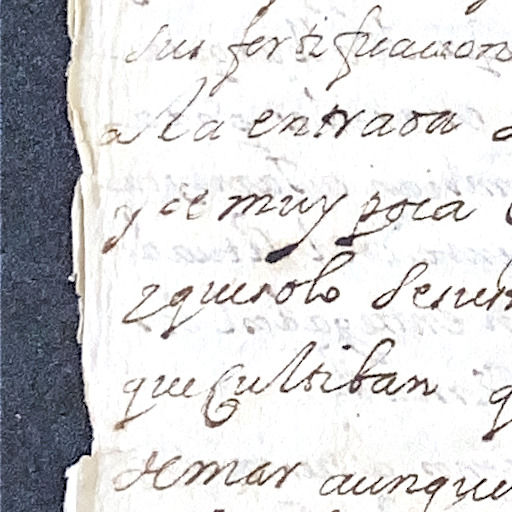 sus fortificacion
a la entrada d
y de muy poca
que solo deun
que Cultiban q
de mar aunque